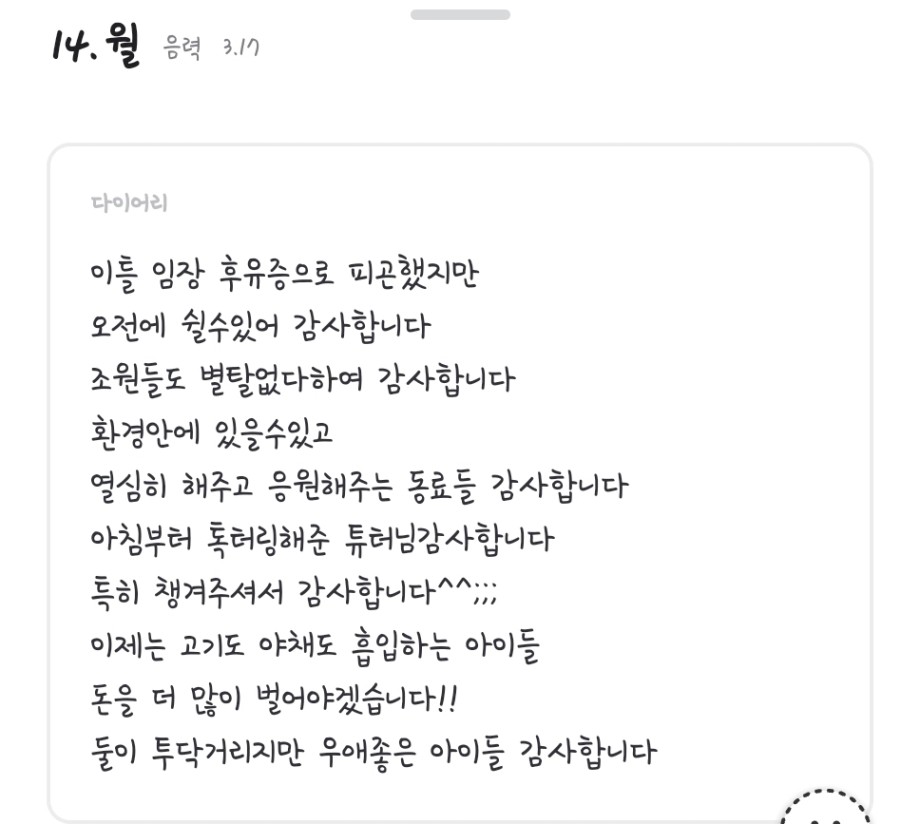 14. 월 음력 3.17
다이어리
이틀 임장 후유증으로 피곤했지만
오전에 쉴수있어 감사합니다
조원들도 별탈없다하여 감사합니다
환경안에 있을수있고
열심히 해주고 응원해주는 동료들 감사합니다
아침부터 독터링해준 튜터님감사합니다
특히 챙겨주셔서 감사합니다^^;;;
이제는 고기도 야채도 흡입하는 아이들
돈을 더 많이 벌어야겠습니다!!
둘이 투닥거리지만 우애좋은 아이들 감사합니다